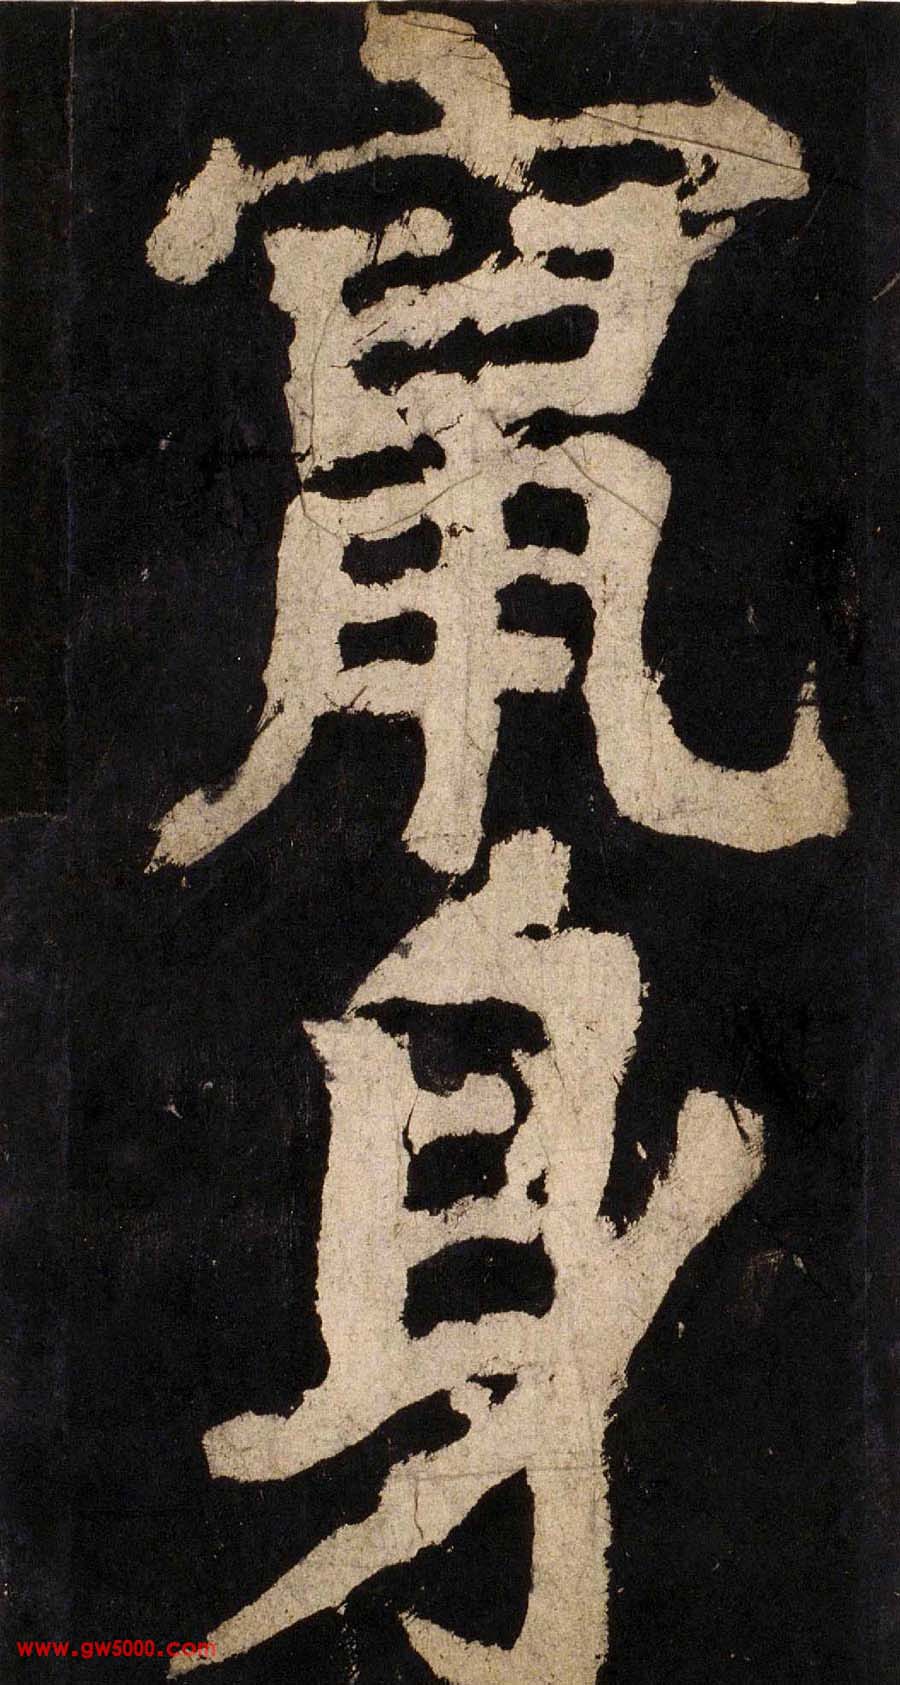 竄
身
www.gw5000.com